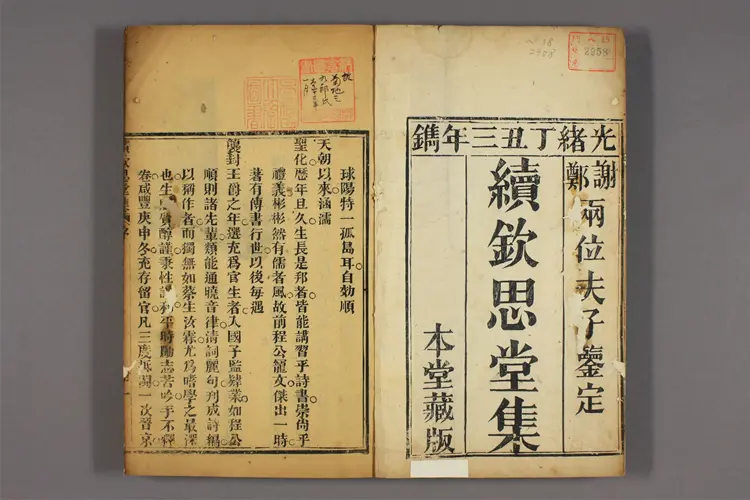 光緒丁丑三年鐫
謝鄭兩位夫子鑒定
續欽思堂集
本堂藏版
2958
球陽特一孤島耳自効順
天朝以來涵濡
聖化歷年旦久生長是邦者皆能講習乎詩書崇尙乎
禮義彬彬然有儒者風故前程公寵文傑出一時
著有傳書行世以後每遇
襲封王爵之年選充爲官生者入國子監肄業如程公
順則諸先輩類能通曉音律淸詞麗句刋成詩編
以稱作者而獨無如蔡生汝霖尤爲嗜學之最深
也生 質醇謹秉性 和平時勵志芸吟手不釋
卷咸豐庚申冬充存留官凡三度 一次晉京